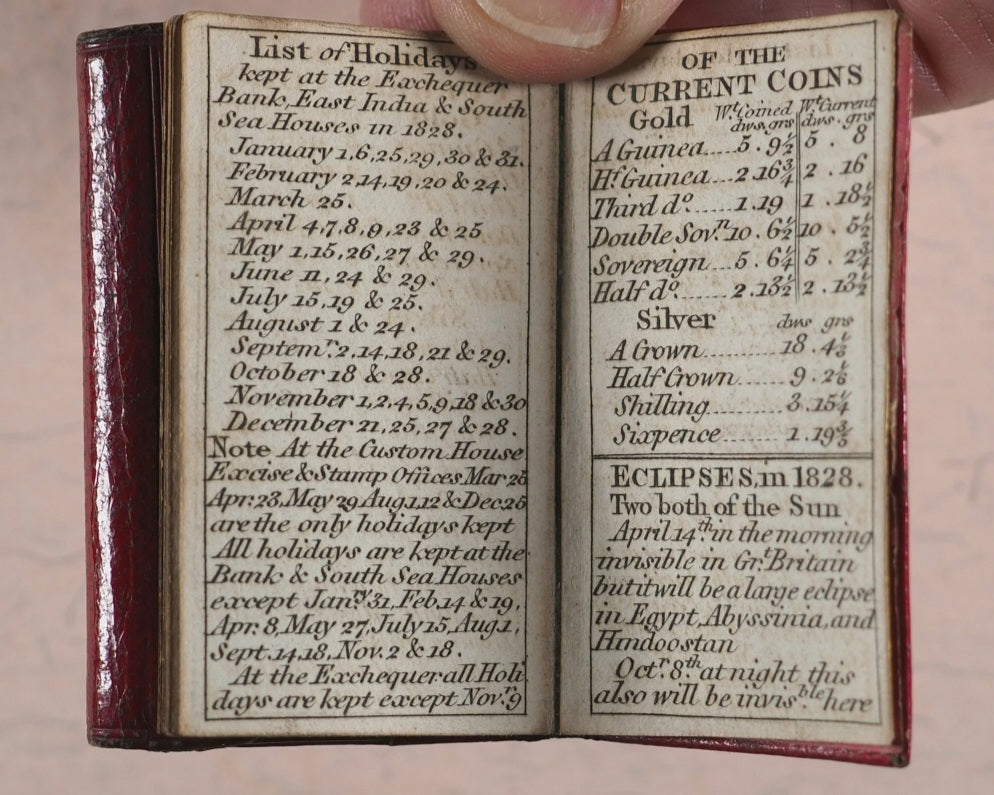 List of Holidays
kept at the Exchequer
Bank, East India & South
Sea Houses in 1828.
January 1,6,25,29,30 & 31.
February 2,14,19,20 & 24.
March 25.
April 4,7,8,9,23 & 25
May 1,15,26,27 & 29.
June 11,24 & 29.
July 15,19 & 25.
August 1 & 24.
Septemr. 2,14,18,21 & 29.
October 18 & 28.
November 1,2,4,5,9,18 & 30
December 21,25,27 & 28.
Note At the Custom House
Excise & Stamp Offices Mar 25
Apr: 23, May 29 Aug. 12 & Dec 25
are the only holidays kept
All holidays are kept at the
Bank & South Sea Houses
except Jany. 31, Feb. 14 & 19,
Apr. 8, May 27, July 15, Aug 1,
Sept. 14.18, Nov. 2 & 18.
At the Exchequer all Holi
days are kept except Novr. 9
OF THE
CURRENT COINS
Gold Wt. Coined Wt. Current
dws. grs dws. grs
A Guinea.... 5 . 9½ 5 . 8
Hf. Guinea... 2 16¾ 2 . 16
Third do. ...... 1.19 1 . 18½
Double Sovn. 10 . 6½ 10 . 5½
Sovereign ... 5 . 6¼ 5 . 2¾
Half do. ....... 2.13½ 2 . 13½
Silver dws grs
A Crown........... 18 . 4⅓
Half Crown....... 9 . 2⅙
Shilling........... 3.15¼
Sixpence.......... 1.19⅗
ECLIPSES, in 1828.
Two both of the Sun
April 14th. in the morning
invisible in Grt. Britain
but it will be a large eclipse
in Egypt, Abyssinia, and
Hindoostan
Octr. 8th at night this
also will be invis.ble here